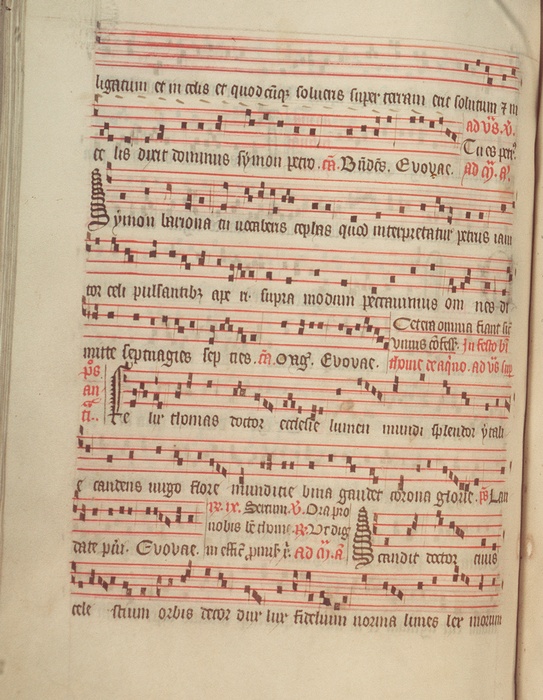 ligatum et in celis et quodcūq; solueris super terram erit solutum ⁊ in
ad v̄s. v̄.
Tu es petr̄
ce lis dixit dominus symon petro. cā. Bn̄dēs. Evovae. ad m̄. ā.
Symon bariona tu uocaberis cephas quod interpretatur petrus iani
tor celi pulsantibȝ ape ri supra modum peccauimus om nes di
Cetera omnia fiant sic̄
vnius cōfess. In festo bī
mitte septuagies sep ties. cā. Mag. Evovae. thome de aqno. ad vs̄ sup
ps̄.
an̄
Fe lix thomas doctor ecclesie lumen mundi splendor ytali
e candens uirgo flore mundicie bina gaudet corona glorie. ps̄ Lau
v̄. Ora pro
nobis bē thoma. R. Vt dig
date pūi. Evovae. ad m̄. ā. Scandit doctor ciuis
cele stium orbis decor dux lux fidelium norma limes lex morum